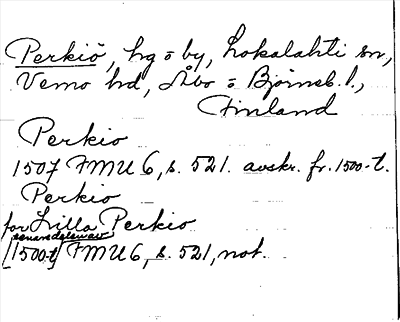 Perkiö, hg o by, Lokalahti sn,
Vemo hd, Åbo o Björneb. l.,
Finland
Perkio
1507 FMU 6, s. 521. avskr. fr. 1500-t.
Perkio
for Lilla Perkio
senare delen av
[1500-t] FMU 6, s. 521, not.